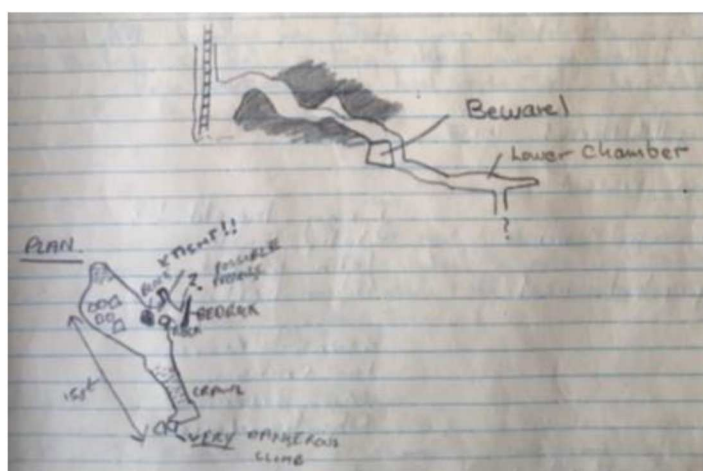 Beware!
Lower Chamber
?
PLAN.
TIGHT!!
?
POSSIBLE
BEDROCK
CRAWL
VERY DANGEROUS
CLIMB